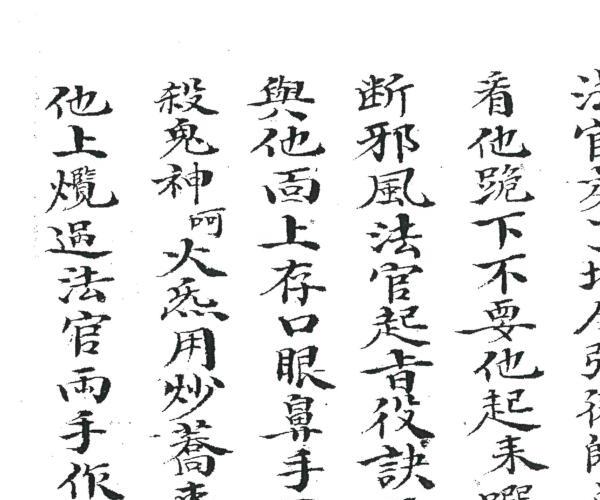 法官
看他跪下不要他起来
断邪風法官起㫖役訣
與他面上存口眼鼻手
殺鬼神呵火炁用炒蕎
他上爁過法官兩手作